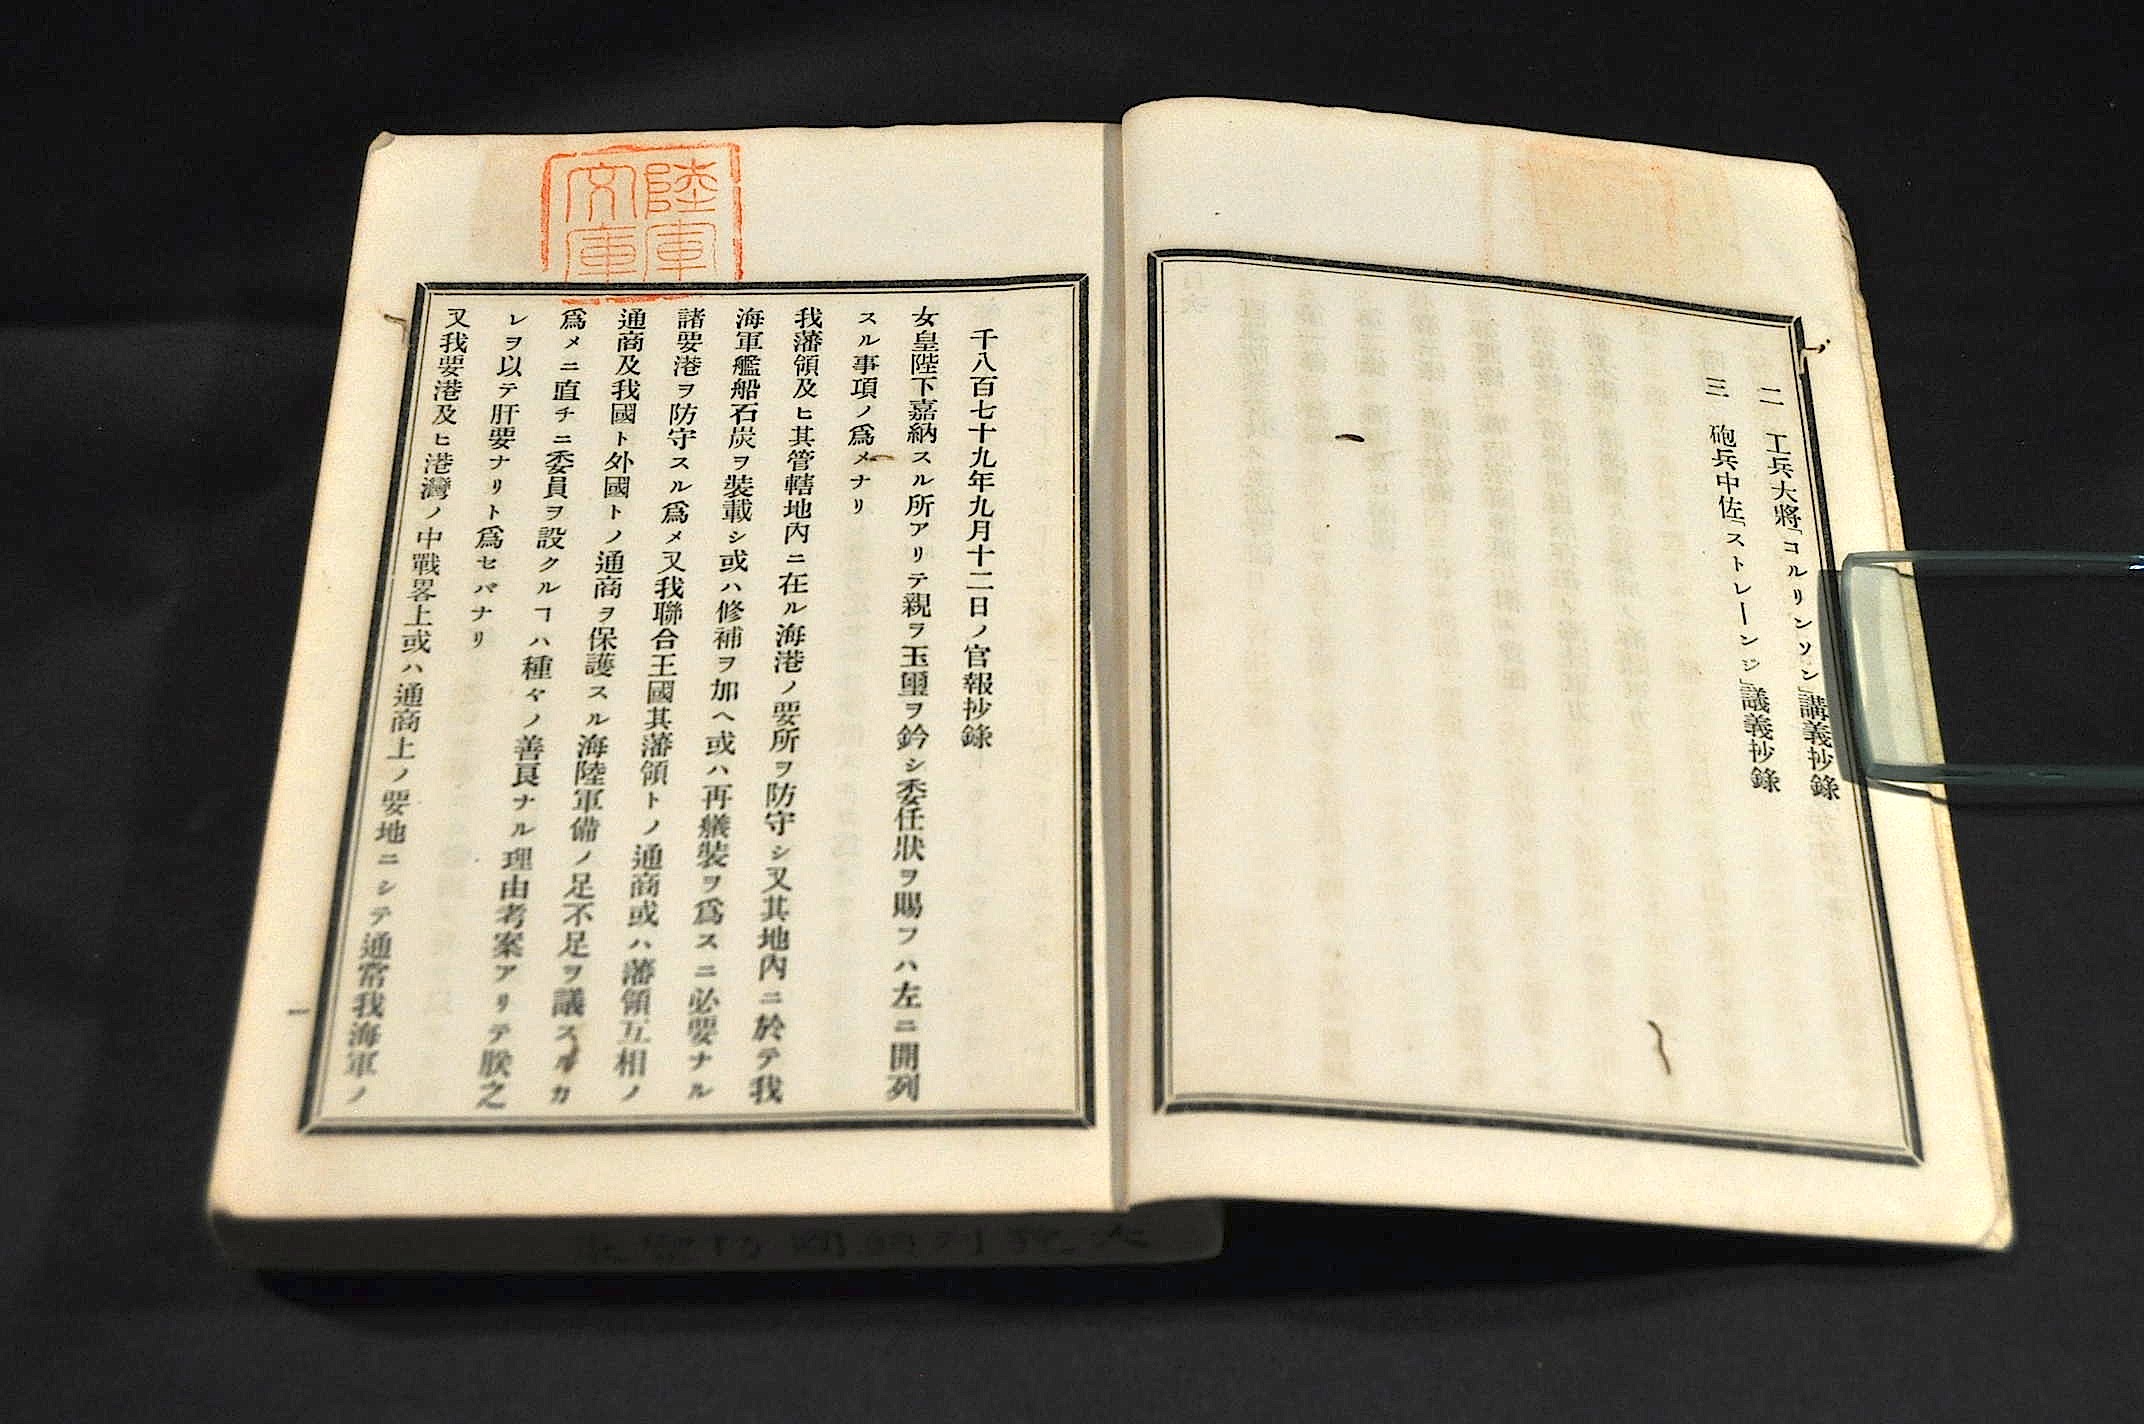 二 工兵大將「コルリンソン」講義抄錄
三 砲兵中佐「ストレーンジ」議義抄錄
陸軍
文庫
千八百七十九年九月十二日ノ官報抄錄
女皇陛下嘉納スル所アリテ親ヲ玉璽ヲ鈐シ委任狀ヲ賜フハ左ニ開列
スル事項ノ爲メナリ
我藩領及ヒ其管轄地內ニ在ル海港ノ要所ヲ防守シ又其地內ニ於テ我
海軍艦船石炭ヲ裝載シ或ハ修補ヲ加ヘ或ハ再艤裝ヲ爲スニ必要ナル
諸要港ヲ防守スル爲メ又我聯合王國其藩領トノ通商或ハ藩領互相ノ
通商及我國ト外國トノ通商ヲ保護スル海陸軍備ノ足不足ヲ議スルカ
爲メニ直チニ委員ヲ設クルヿハ種々ノ善良ナル理由考案アリテ朕之
レヲ以テ肝要ナリト爲セバナリ
又我要港及ヒ港灣ノ中戰畧上或ハ通商上ノ要地ニシテ通常我海軍ノ
一